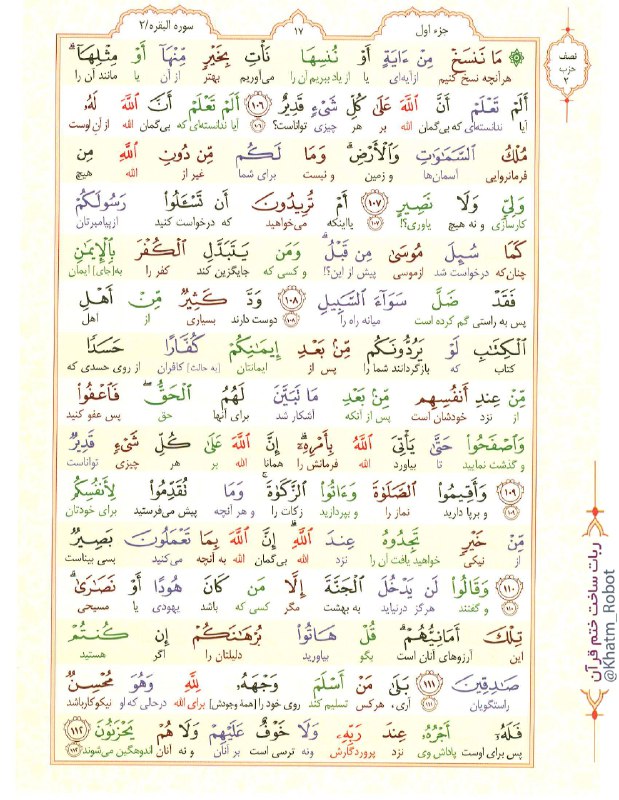 سوره البقره/٢
١٧
جزء اول
نصف
حزب
٢
مَا نَنسَخْ مِنْ ءَايَةٍ أَوْ نُنسِهَا نَأْتِ بِخَيْرٍ مِّنْهَآ أَوْ مِثْلِهَآ
هرآنچه نسخ کنیم از آیه‌ای یا از یاد ببریم آن را می‌آوریم بهتر از آن یا مانند آن را
أَلَمْ تَعْلَمْ أَنَّ ٱللَّهَ عَلَىٰ كُلِّ شَىْءٍ قَدِيرٌ ١٠٦ أَلَمْ تَعْلَمْ أَنَّ ٱللَّهَ لَهُۥ
آیا ندانسته‌ای که بی‌گمان الله بر هر چیزی تواناست؟ ١٠٦ آیا ندانسته‌ای که بی‌گمان الله از آنِ اوست
مُلْكُ ٱلسَّمَـٰوَٰتِ وَٱلْأَرْضِ وَمَا لَكُم مِّن دُونِ ٱللَّهِ مِن
فرمانروایی آسمان‌ها و زمین و نیست برای شما غیر از الله هیچ
وَلِىٍّ وَلَا نَصِيرٍ ١٠٧ أَمْ تُرِيدُونَ أَن تَسْـَٔلُوا۟ رَسُولَكُمْ
کارسازی و نه هیچ یاوری؟! ١٠٧ یا اینکه می‌خواهید که درخواست کنید از پیامبرتان
كَمَا سُئِلَ مُوسَىٰ مِن قَبْلُ وَمَن يَتَبَدَّلِ ٱلْكُفْرَ بِٱلْإِيمَـٰنِ
چنان‌که درخواست شد از موسی پیش از این؟! و کسی که جایگزین کند کفر را به[جای] ایمان
فَقَدْ ضَلَّ سَوَآءَ ٱلسَّبِيلِ ١٠٨ وَدَّ كَثِيرٌ مِّنْ أَهْلِ
پس به راستی گم کرده است میانه راه را ١٠٨ دوست دارند بسیاری از اهل
ٱلْكِتَـٰبِ لَوْ يَرُدُّونَكُم مِّنۢ بَعْدِ إِيمَـٰنِكُمْ كُفَّارًا حَسَدًا
کتاب که بازگردانند شما را پس از ایمانتان [به حالت] کافران از روی حسدی که
مِّنْ عِندِ أَنفُسِهِم مِّنۢ بَعْدِ مَا تَبَيَّنَ لَهُمُ ٱلْحَقُّ فَٱعْفُوا۟
از نزد خودشان است پس از آنکه آشکار شد برای آنها حق پس عفو کنید
وَٱصْفَحُوا۟ حَتَّىٰ يَأْتِىَ ٱللَّهُ بِأَمْرِهِۦٓ إِنَّ ٱللَّهَ عَلَىٰ كُلِّ شَىْءٍ قَدِيرٌ
و گذشت نمایید تا بیاورد الله فرمانش را همانا الله بر هر چیزی تواناست
١٠٩ وَأَقِيمُوا۟ ٱلصَّلَوٰةَ وَءَاتُوا۟ ٱلزَّكَوٰةَ وَمَا تُقَدِّمُوا۟ لِأَنفُسِكُم
١٠٩ و برپا دارید نماز را و بپردازید زکات را و هر آنچه پیش می‌فرستید برای خودتان
مِّنْ خَيْرٍ تَجِدُوهُ عِندَ ٱللَّهِ إِنَّ ٱللَّهَ بِمَا تَعْمَلُونَ بَصِيرٌ
از نیکی خواهید یافت آن را نزد الله بی‌گمان الله به آنچه می‌کنید بسی بیناست
١١٠ وَقَالُوا۟ لَن يَدْخُلَ ٱلْجَنَّةَ إِلَّا مَن كَانَ هُودًا أَوْ نَصَـٰرَىٰ
١١٠ و گفتند هرگز درنیاید به بهشت مگر کسی که باشد یهودی یا مسیحی
تِلْكَ أَمَانِيُّهُمْ قُلْ هَاتُوا۟ بُرْهَـٰنَكُمْ إِن كُنتُمْ
این آرزوهای آنان است بگو بیاورید دلیلتان را اگر هستید
صَـٰدِقِينَ ١١١ بَلَىٰ مَنْ أَسْلَمَ وَجْهَهُۥ لِلَّهِ وَهُوَ مُحْسِنٌ
راستگویان ١١١ آری، هرکس تسلیم کند روی خود را [همهٔ وجودش] برای الله درحالی که او نیکوکار باشد
فَلَهُۥٓ أَجْرُهُۥ عِندَ رَبِّهِۦ وَلَا خَوْفٌ عَلَيْهِمْ وَلَا هُمْ يَحْزَنُونَ ١١٢
پس برای اوست پاداش وی نزد پروردگارش و نه ترسی است بر آنان و نه آنان اندوهگین می‌شوند ١١٢
ربات ساخت ختم قرآن
@Khatm_Robot